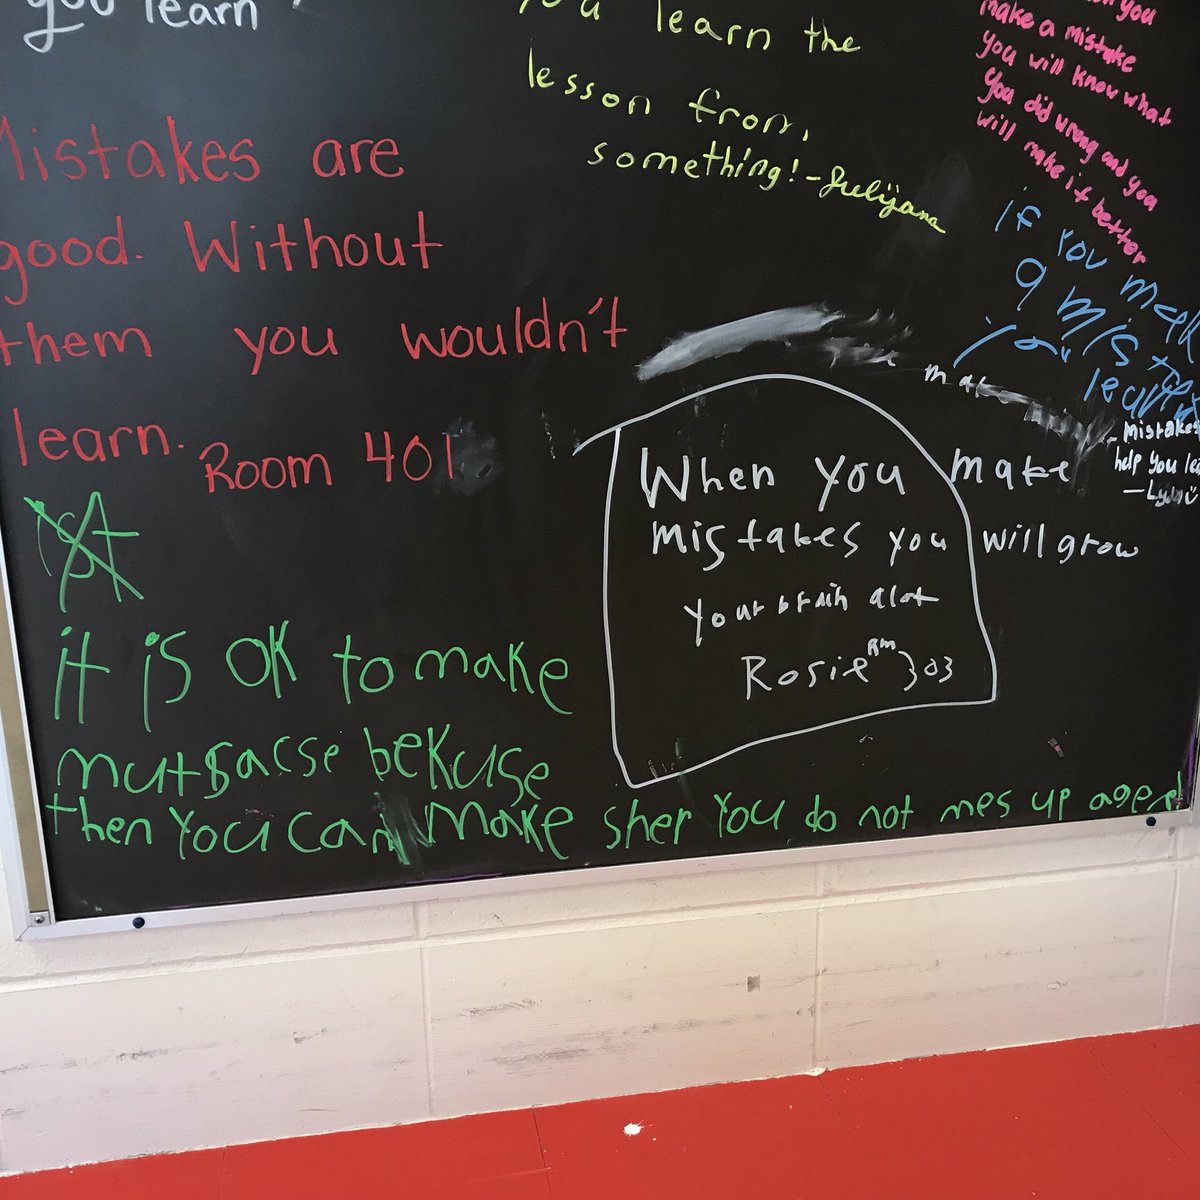 you learn
you learn the
lesson from,
something! - Julijana
you
make a mistake
you will know what
you did wrong and you
will make it better
Mistakes are
good. Without
them you wouldn't
learn. Room 401
if you
a
you learn
make
- Mistakes
help you
When you make
mistakes you will grow
your brain alot
Rosie Rm 303
it is OK to make
mutsacse bekuse
then you can make sher you do not mes up agen